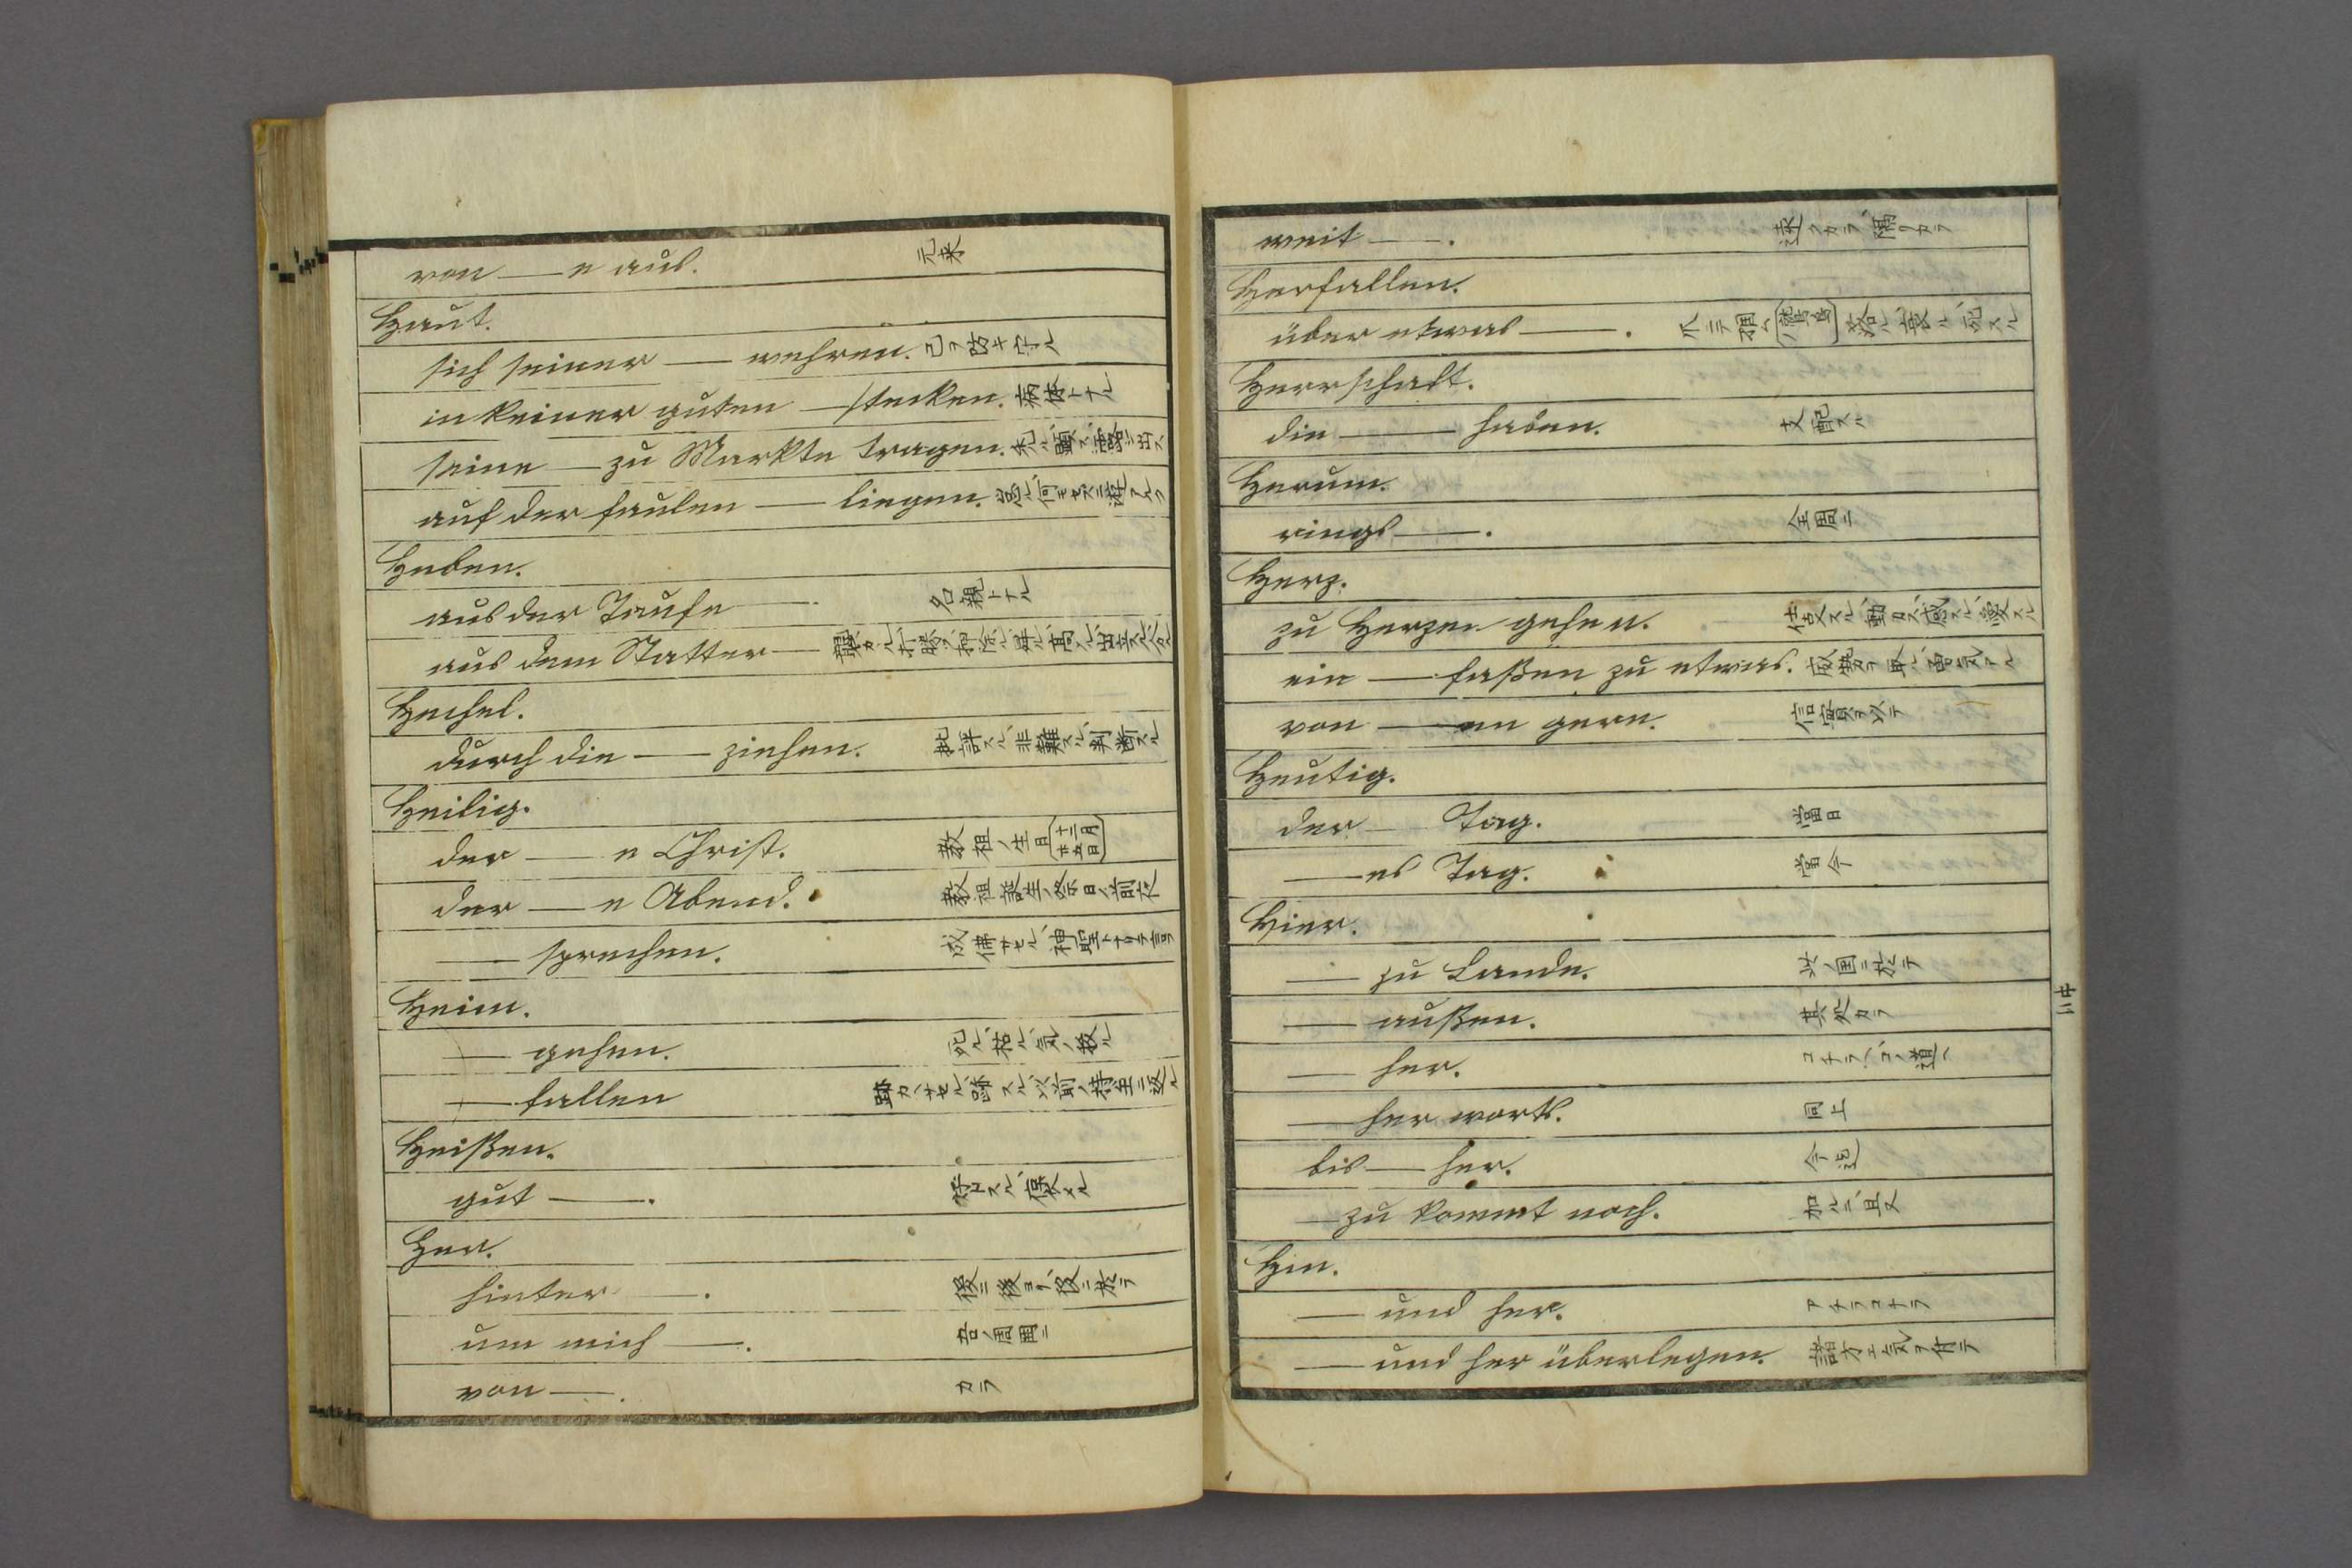 von — n aus. 元来
Haut.
sich seiner — wehren. 己ヲ防キ守ル
in keiner guten — stecken. 病体トナル
seine — zu Markte tragen.
auf der faulen — liegen.
Heben.
aus der Taufe —. 名親トナル
aus dem Sattel —
Hechel.
durch die — ziehen. 批評スル、非難スル、判断スル
Heilig.
der — e Christ. 教祖ノ生日(十二月廿五日)
der — e Abend. 教祖誕生ノ祭日ノ前夜
— sprechen. 成佛サセル、神聖トナリテ言フ
Heim.
— gehen. 死ル、枯ル、気ノ抜ル
— fallen
Heißen.
gut —.
Her.
hinter —. 後ニ、後ヨリ、後ニ於テ
um mich —. 吾ノ周囲ニ
von —. カラ
weit —. 遠クカラ、隔リカラ
Herfallen.
über etwas —. 爪ニテ摑ム(鷹鳥)落ル、衰ル、死スル
Herrschaft.
die — haben. 支配スル
Herum.
rings —. 全周ニ
Herz.
zu Herzen gehen.
ein — faßen zu etwas. 勇気アル
von — en gern. 信實ヲ以テ
Heutig.
der — Tag. 當日
— es Tag. 當今
Hier.
— zu Lande. 此ノ国ニ於テ
— außen. 其処カラ
— her. コチラヘ、コノ道ヘ
— her warts. 同上
bis — her. 今迄
— zu kommt noch. 加ルニ、且又
Hin.
— und her. アチラコチラ
— und her überlegen. 諸方エ気ヲ付テ
中 二